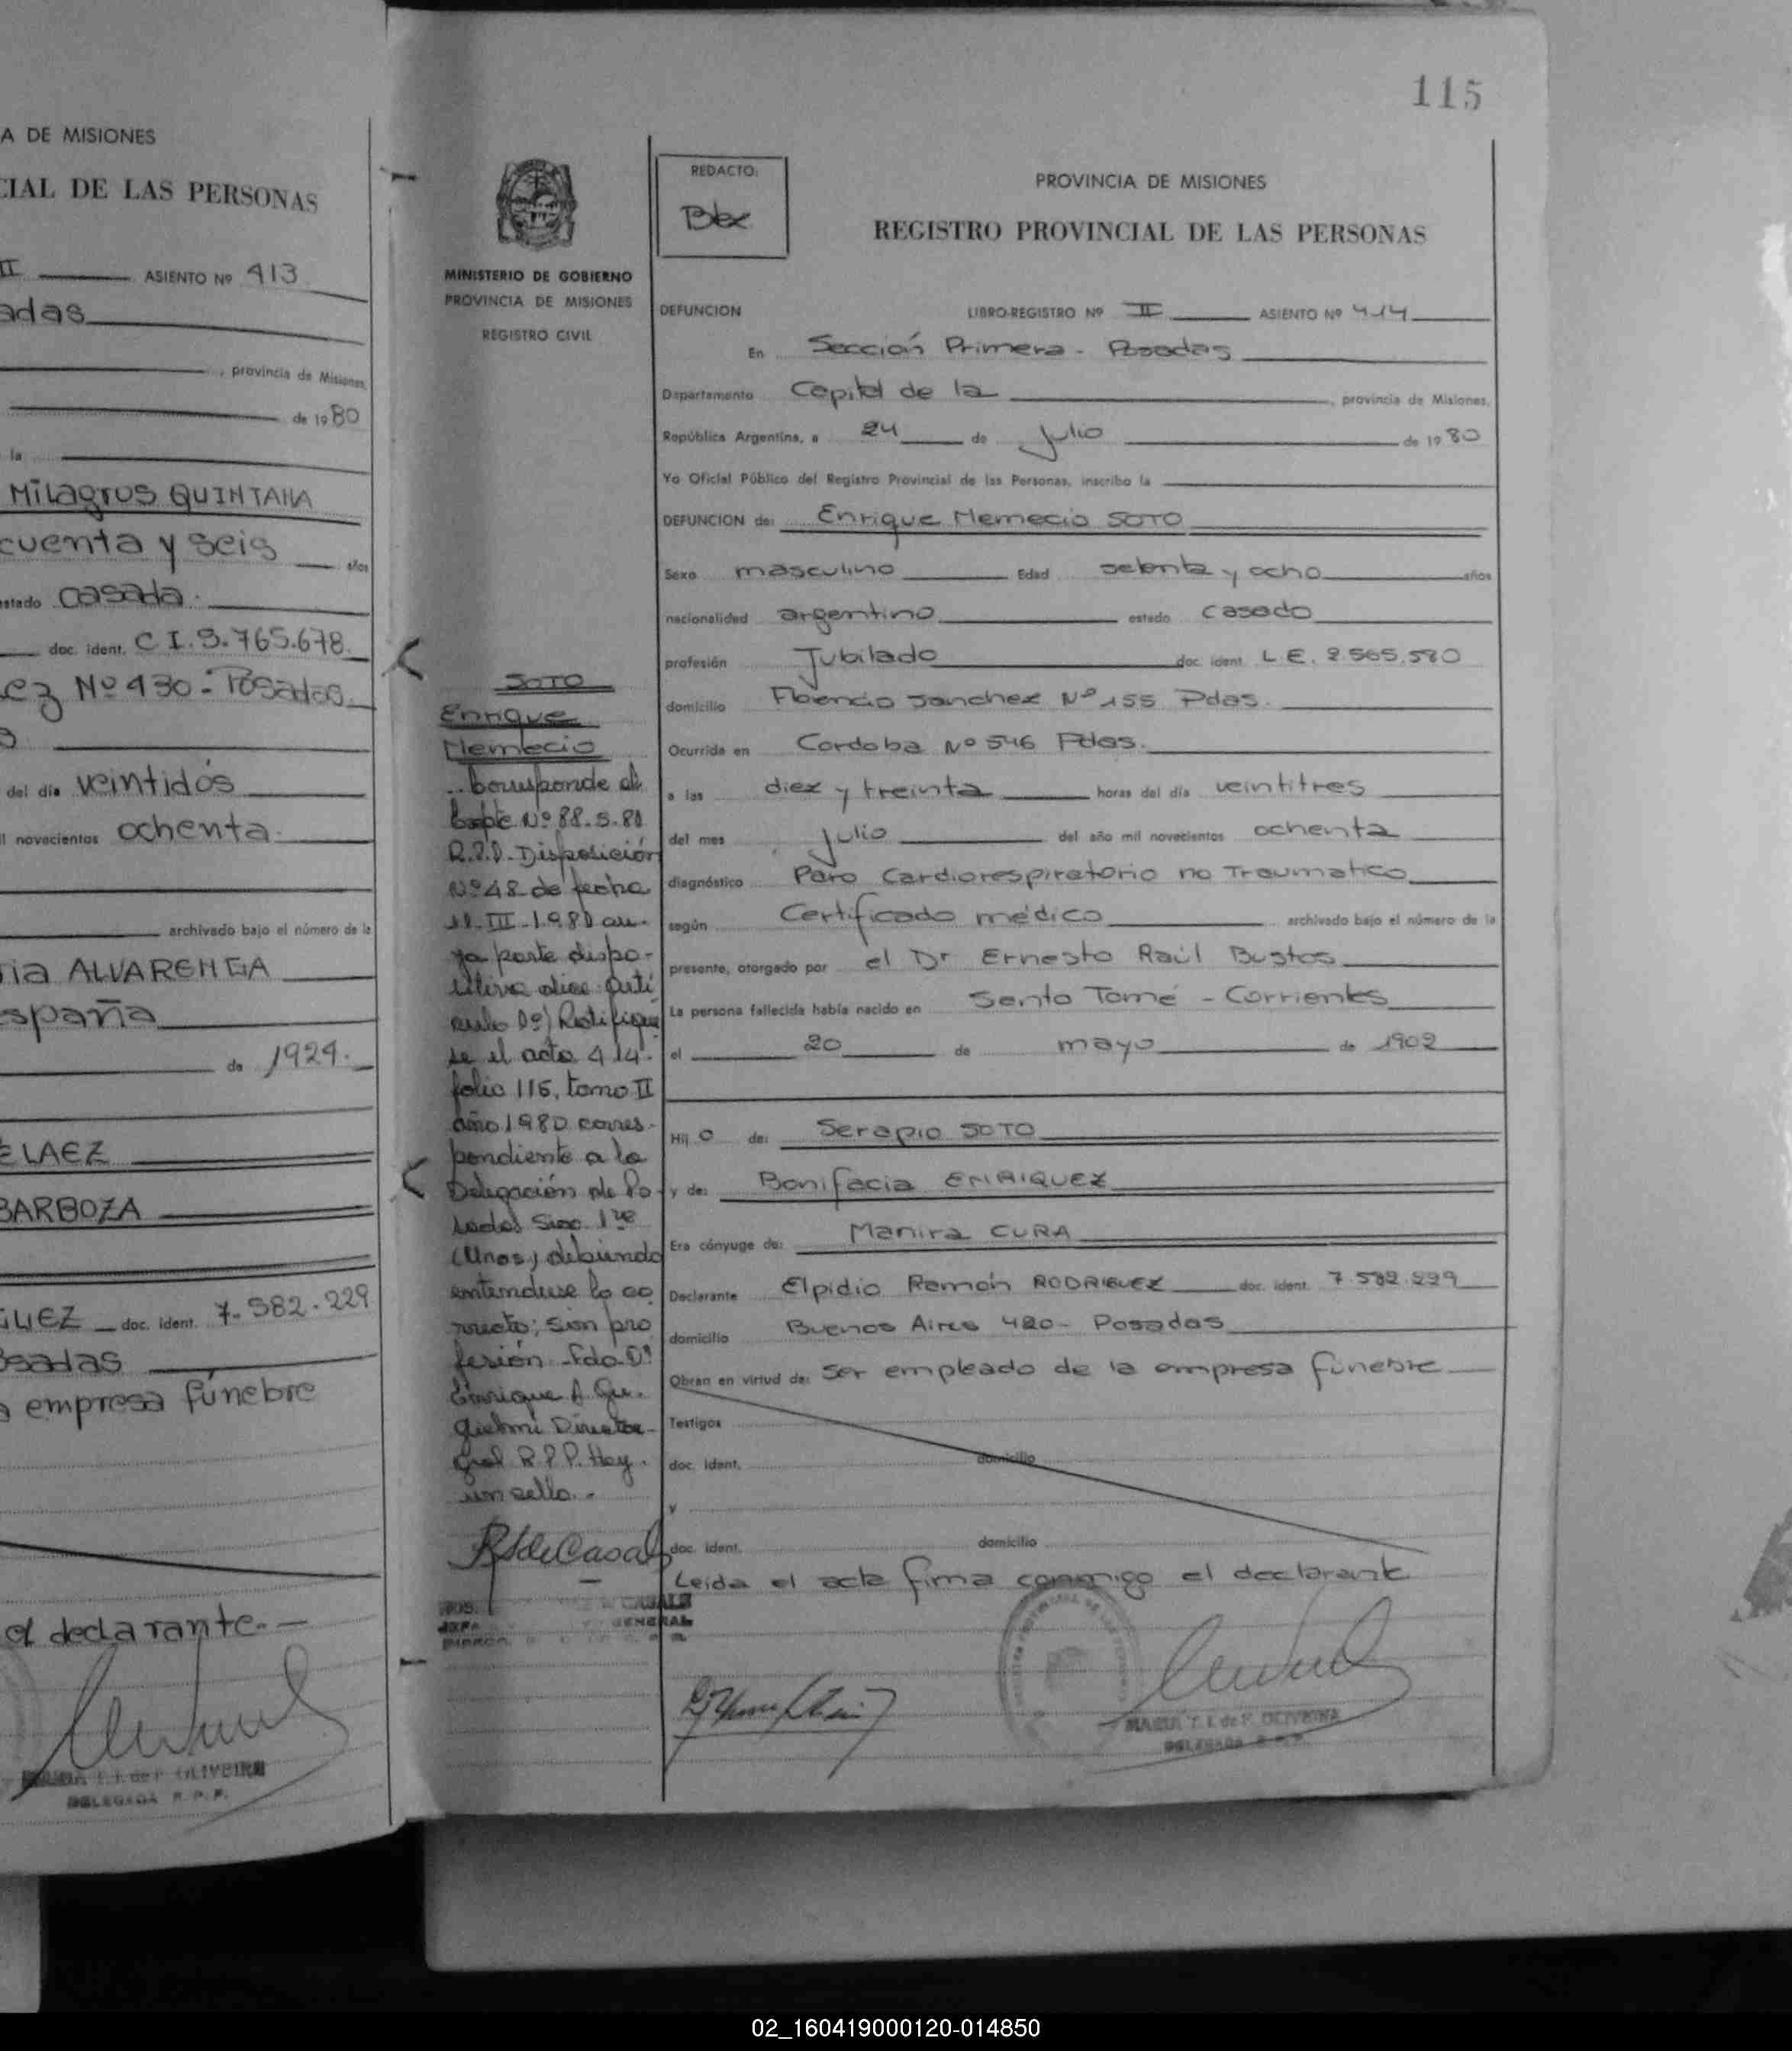 A DE MISIONES
CIAL DE LAS PERSONAS
II ASIENTO Nº 413
adas
, provincia de Misiones,
de 1980
la
Milagros QUINTANA
cuenta y seis años
estado casada.
doc. ident. C I. 9.765.678.
ez Nº 430 - Posadas
del día veintidós
il novecientos ochenta.
archivado bajo el número de la
ria ALVARENGA
España
de 1924.
ELAEZ
BARBOZA
GUEZ doc. ident. 7.582.229
osadas
a empresa fúnebre
el declarante. —
OLIVEIRA
DELEGADA R. P. P.
115
MINISTERIO DE GOBIERNO
PROVINCIA DE MISIONES
REGISTRO CIVIL
SOTO
Enrique
Nemecio
Corresponde al
Expte Nº 88.S.80
R.P.P. Disposición
Nº 48 de fecha
III-1980 cu-
ya parte dispo-
sitiva dice: Artí
culo 1º) Rectifíque
se el acta 414.
folio 115, tomo II
año 1980 corres-
pondiente a la
Delegación de Po-
sadas Secc. 1ra
(Unos) debiendo
entenderse lo co
rrecto; sin pro
fesión - Fdo. Dº
Enrique A. Gu-
glielmi Director
Gral R.P.P. Hay
un sello. -
REDACTO:
PROVINCIA DE MISIONES
REGISTRO PROVINCIAL DE LAS PERSONAS
DEFUNCION LIBRO-REGISTRO Nº II ASIENTO Nº 414
En Sección Primera - Posadas
Departamento Capital de la , provincia de Misiones,
República Argentina, a 24 de Julio de 1980
Yo Oficial Público del Registro Provincial de las Personas, inscribo la
DEFUNCION de: Enrique Nemecio SOTO
Sexo masculino Edad setenta y ocho años
nacionalidad argentino estado casado
profesión Jubilado doc. ident. L.E. 2.565.580
domicilio Florencio Sanchez Nº 155 Pdas.
Ocurrida en Cordoba Nº 546 Pdas.
a las diez y treinta horas del día veintitres
del mes julio del año mil novecientos ochenta
diagnóstico Paro Cardiorespiratorio no Traumatico
según Certificado médico archivado bajo el número de la
presente, otorgado por el Dr Ernesto Raúl Bustos
La persona fallecida había nacido en Santo Tomé - Corrientes
el 20 de mayo de 1902
Hij o de: Serapio SOTO
y de: Bonifacia ENRIQUEZ
Era cónyuge de: Manira CURA
Declarante Elpidio Ramón RODRIGUEZ doc. ident. 7.582.229
domicilio Buenos Aires 420 - Posadas
Obran en virtud de: Ser empleado de la empresa fúnebre
Testigos
doc. ident. domicilio
y
doc. ident. domicilio
Leída el acta firma conmigo el declarante
MARIA T. I. de F. OLIVEIRA
DELEGADA R. P. P.
02_160419000120-014850